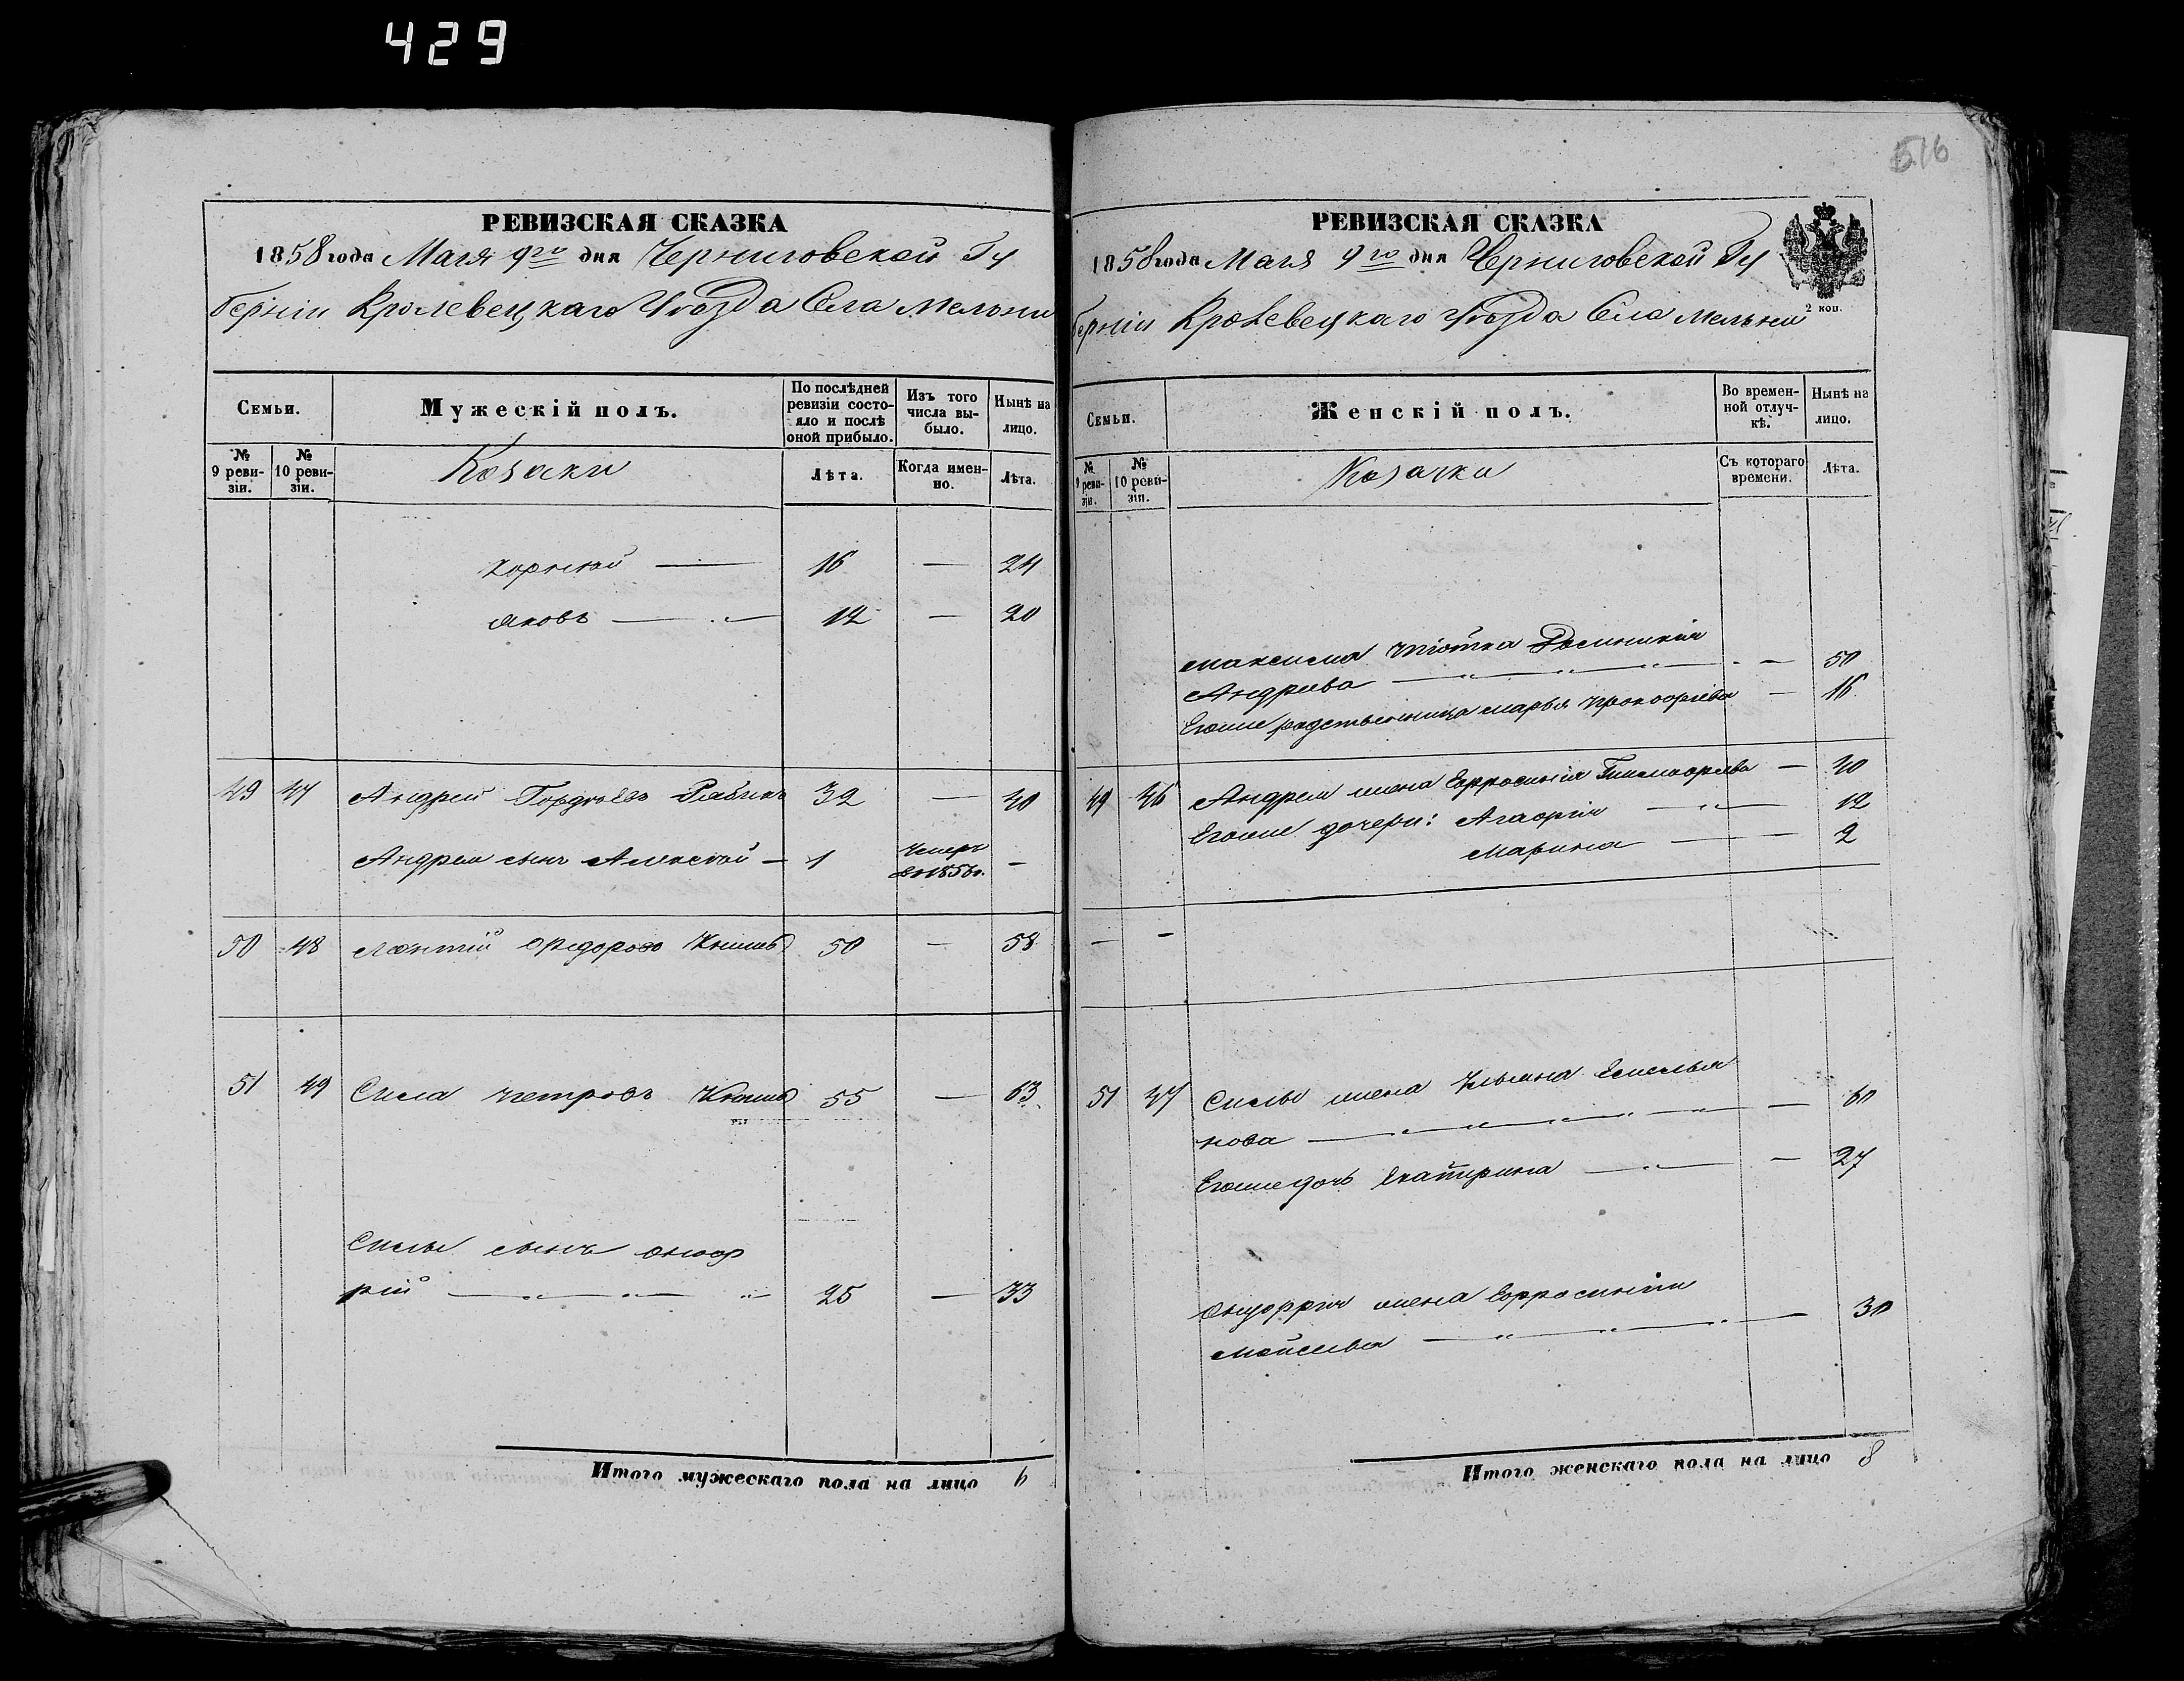 429
516
РЕВИЗСКАЯ СКАЗКА
1858 года Маія 9го дня Черниговской Гу
берніи Кролевецкаго Уѣзда Села Мельни
Семьи.
Мужескій полъ.
По послѣдней ревизіи состояло и послѣ оной прибыло.
Изъ того числа выбыло.
Нынѣ на лицо.
№ 9 ревизіи.
№ 10 ревизіи.
Козаки
Лѣта.
Когда именно.
Лѣта.
Корнѣй — 16 — 24
Яковъ — 12 — 20
49 47 Андрей Гордѣевъ 32 — 40
Андрея сынъ Алексѣй — 1 — —
50 48 Леонтій Федоровъ Книшъ 50 — 58
51 49 Сила Петровъ Книшъ 55 — 63
Силы сынъ Оноф
рій — 25 — 33
Итого мужескаго пола на лицо 6
РЕВИЗСКАЯ СКАЗКА
1858 года Маія 9го дня Черниговской Гу
берніи Кролевецкаго Уѣзда Села Мельни
2 коп.
Семьи.
Женскій полъ.
Во временной отлучкѣ.
Нынѣ на лицо.
№ 9 ревизіи.
№ 10 ревизіи.
Козачки
Съ котораго времени.
Лѣта.
Максима тіотка Домникія
Андреева — — 50
Егоже родственница Марья Прокофіева — 16
49 46 Андрея жена Ефросинія Тимофеева — 40
Егоже дочери: Агафія — 12
Марина — 2
— —
51 47 Силы жена Ульяна Емелья
нова — — 60
Егоже дочь Екатирина — — 27
Онуфрія жена Ефросинія
Мойсеева — — 30
Итого женскаго пола на лицо 8